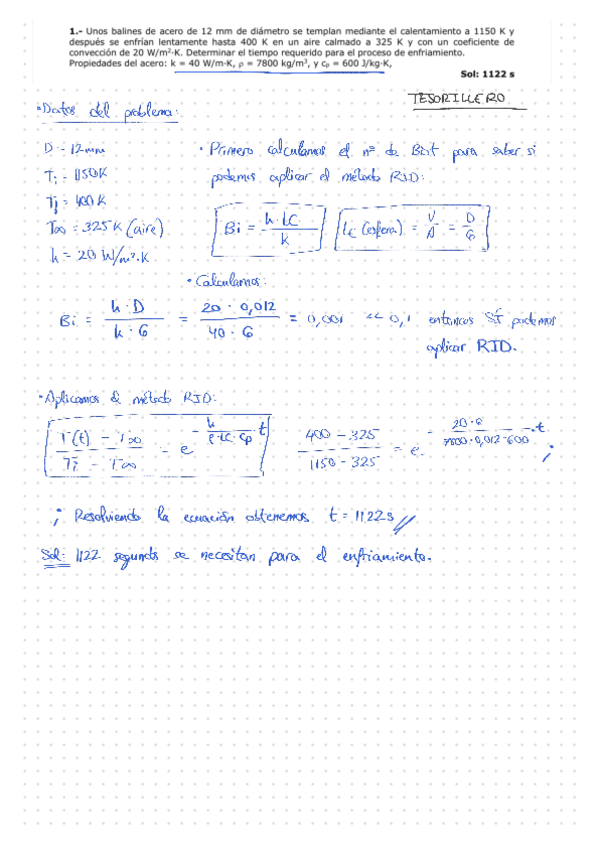 1.- Unos balines de acero de 12 mm de diámetro se templan mediante el calentamiento a 1150 K y
después se enfrían lentamente hasta 400 K en un aire calmado a 325 K y con un coeficiente de
convección de 20 W/m²·K. Determinar el tiempo requerido para el proceso de enfriamiento.
Propiedades del acero: k = 40 W/m·K, ρ = 7800 kg/m³, y cₚ = 600 J/kg·K,
Sol: 1122 s
TESORILLERO
·Datos del problema:
D = 12mm
Ti = 1150K
Tf = 400K
T∞ = 325K (aire)
h = 20 W/m²·K
· Primero calculamos el nº de Biot para saber si
podemos aplicar el método RID:
Bi = h·LC / k
LC (esfera) = V/A = D/6
· Calculamos:
Bi = h·D / k·6 = 20 · 0,012 / 40 · 6 = 0,001 << 0,1 entonces SÍ podemos
aplicar RID.
·Aplicamos el método RID:
T(t) - T∞ / Ti - T∞ = e^(- h / ρ·LC·cp · t)
400 - 325 / 1150 - 325 = e^(- 20·6 / 7800·0,012·600 · t) ;
; Resolviendo la ecuación obtenemos t = 1122s //
Sol: 1122 segundos se necesitan para el enfriamiento.